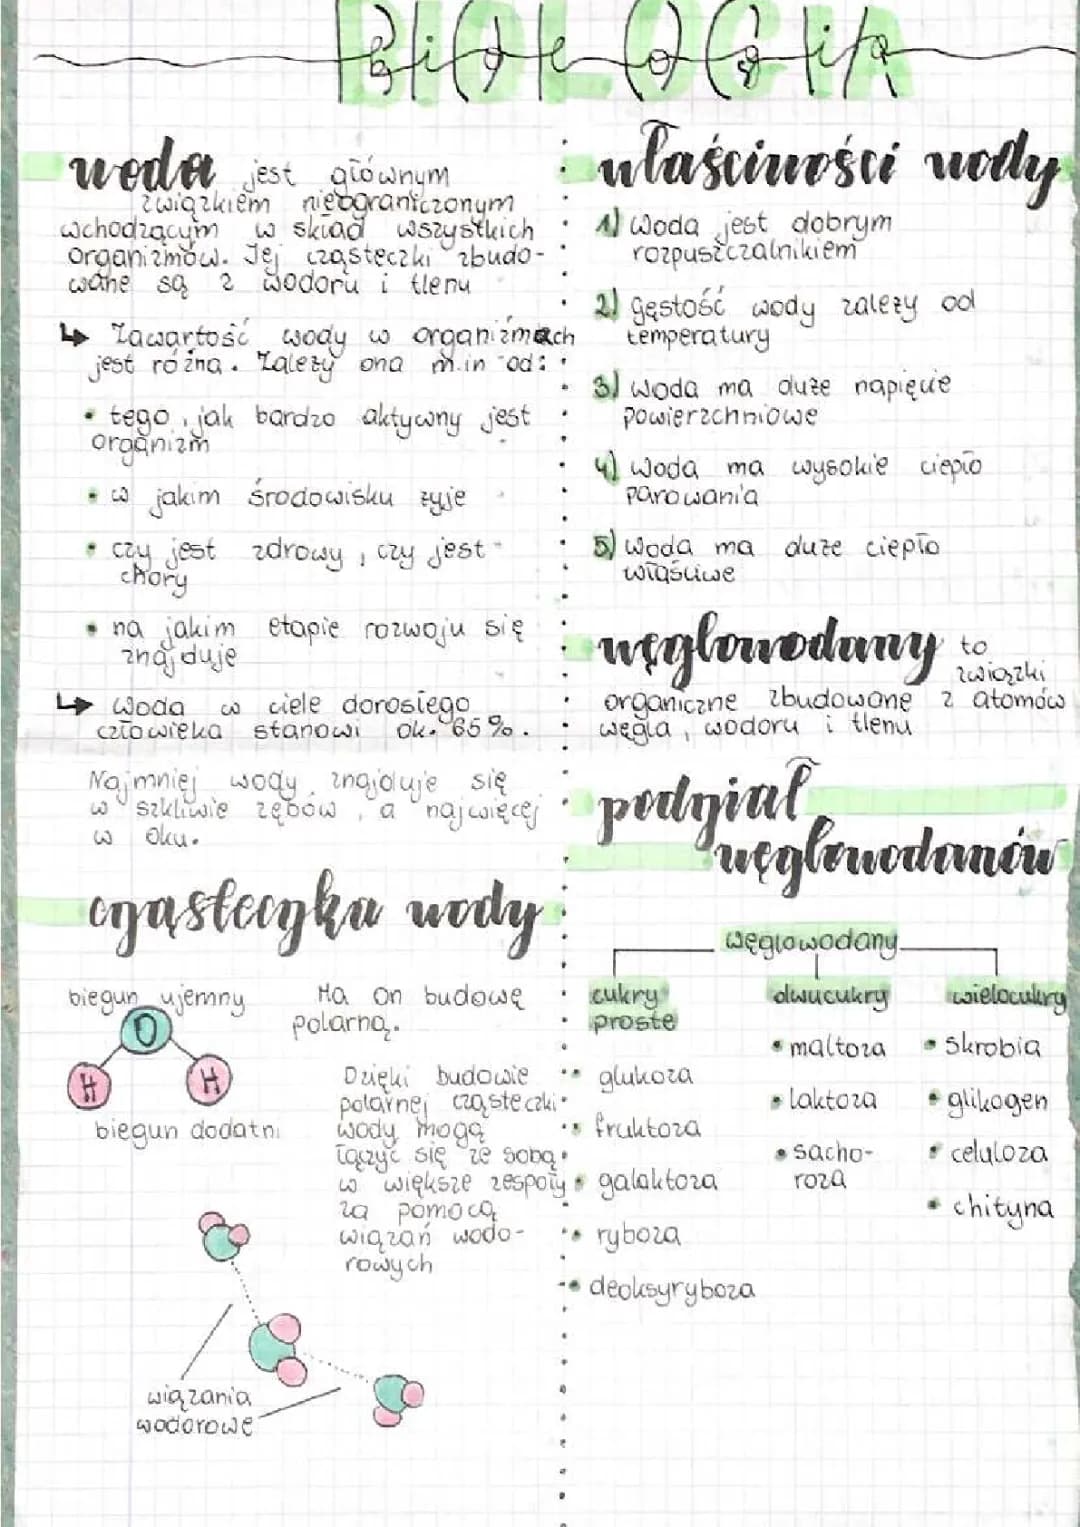 BIOLOGIA
woda jest głównym
związkiem nieograniczonym
wchodzącym w skład wszystkich
organizmów. Jej cząsteczki zbudo-
wane są z wodoru i tlenu
↳ Zawartość wody w organizmach
jest różna. Zależy ona m.in od:
• tego, jak bardzo aktywny jest
organizm
• w jakim środowisku żyje
• czy jest zdrowy, czy jest
chory
• na jakim etapie rozwoju się
znajduje
↳ Woda w ciele dorosłego
człowieka stanowi ok. 65%.
Najmniej wody znajduje się
w szkliwie zębów, a najwięcej
w oku.
cząsteczka wody
biegun ujemny
O
H H
biegun dodatni
Ma on budowę
polarną.
Dzięki budowie
polarnej cząsteczki
wody mogą
łączyć się ze sobą
w większe zespoły
za pomocą
wiązań wodo-
rowych
wiązania
wodorowe
właściwości wody
1) Woda jest dobrym
rozpuszczalnikiem
2) Gęstość wody zależy od
temperatury
3) Woda ma duże napięcie
powierzchniowe
4) Woda ma wysokie ciepło
parowania
5) Woda ma duże ciepło
właściwe
węglowodany to
związki
organiczne zbudowane z atomów
węgla, wodoru i tlenu
podział
węglowodanów
węglowodany
cukry
proste
• glukoza
• fruktoza
• galaktoza
• ryboza
• deoksyryboza
dwucukry
• maltoza
• laktoza
• sacho-
roza
wielocukry
• skrobia
• glikogen
• celuloza
• chityna